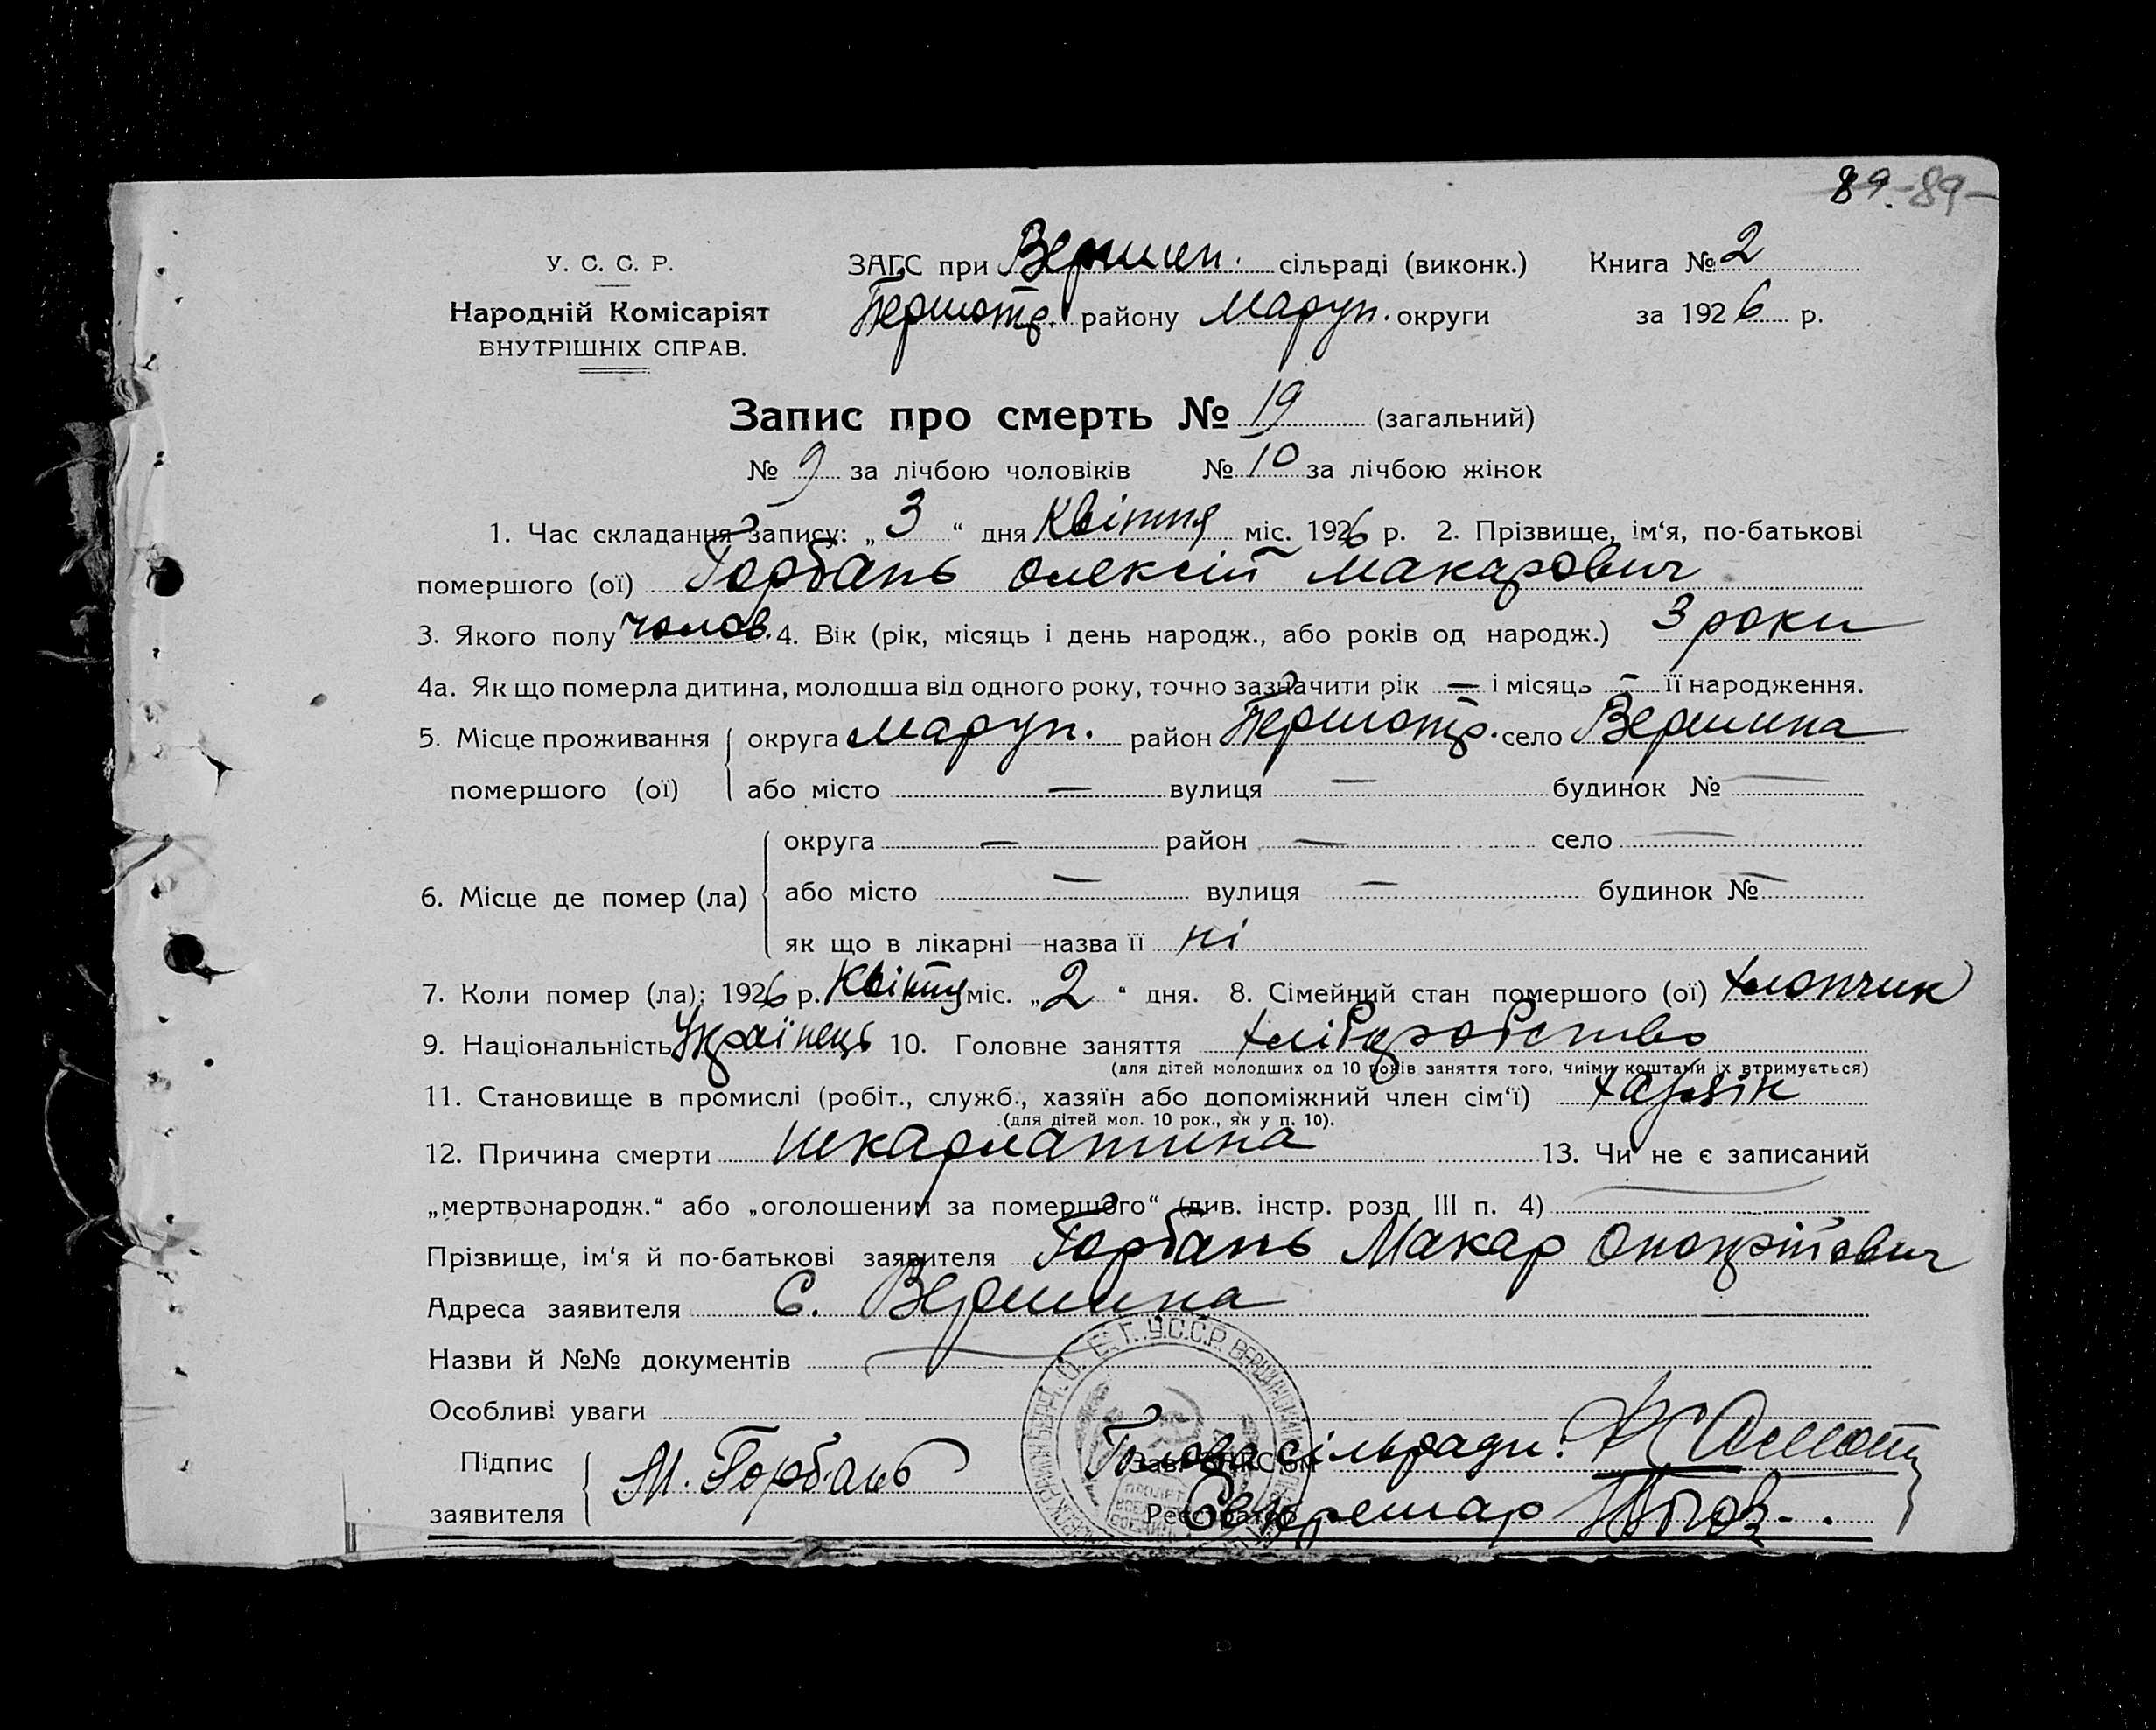 89. 89
У. С. С. Р.
ЗАГС при Вершин. сільраді (виконк.) Книга № 2
Народній Комісаріят
Першотр. району Маруп. округи за 1926 р.
ВНУТРІШНІХ СПРАВ.
Запис про смерть № 19 (загальний)
№ 9 за лічбою чоловіків № 10 за лічбою жінок
1. Час складання запису: „3“ дня Квітня міс. 1926 р. 2. Прізвище, ім‘я, по-батькові
помершого (ої) Горбань Олексій Макарович
3. Якого полу чолов. 4. Вік (рік, місяць і день народж., або років од народж.) 3 роки
4а. Як що померла дитина, молодша від одного року, точно зазначити рік — і місяць — її народження.
5. Місце проживання округа Маруп. район Першотр. село Вершина
помершого (ої) або місто — вулиця — будинок № —
округа — район — село —
6. Місце де помер (ла) або місто — вулиця — будинок № —
як що в лікарні—назва її ні
7. Коли помер (ла): 1926 р. Квітня міс. „2“ дня. 8. Сімейний стан помершого (ої) хлопчик
9. Національність Українець 10. Головне заняття хліборобство
(для дітей молодших од 10 років заняття того, чиїми коштами їх втримується)
11. Становище в промислі (робіт., служб., хазяїн або допоміжний член сім‘ї) хазяїн
(для дітей мол. 10 рок., як у п. 10).
12. Причина смерти шкарлатина 13. Чи не є записаний
„мертвонародж.“ або „оголошеним за помершого“ (див. інстр. розд III п. 4)
Прізвище, ім‘я й по-батькові заявителя Горбань Макар Онопрійович
Адреса заявителя С. Вершина
Назви й №№ документів
Особливі уваги
Підпис М. Горбань Голова сільради:
заявителя Реєстратор Секретар